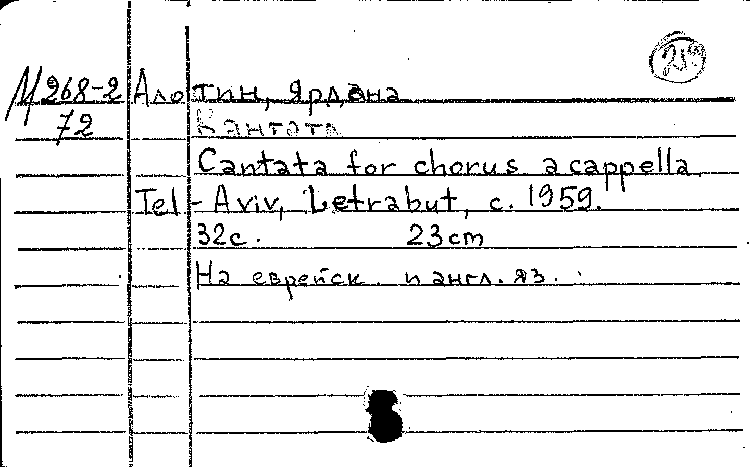 М268-2 Алотин, Ярдэна
72 Кантата
Cantata for chorus a cappella.
Tel-Aviv, Letrabut, c. 1959.
32с. 23cm
На еврейск. и англ. яз.